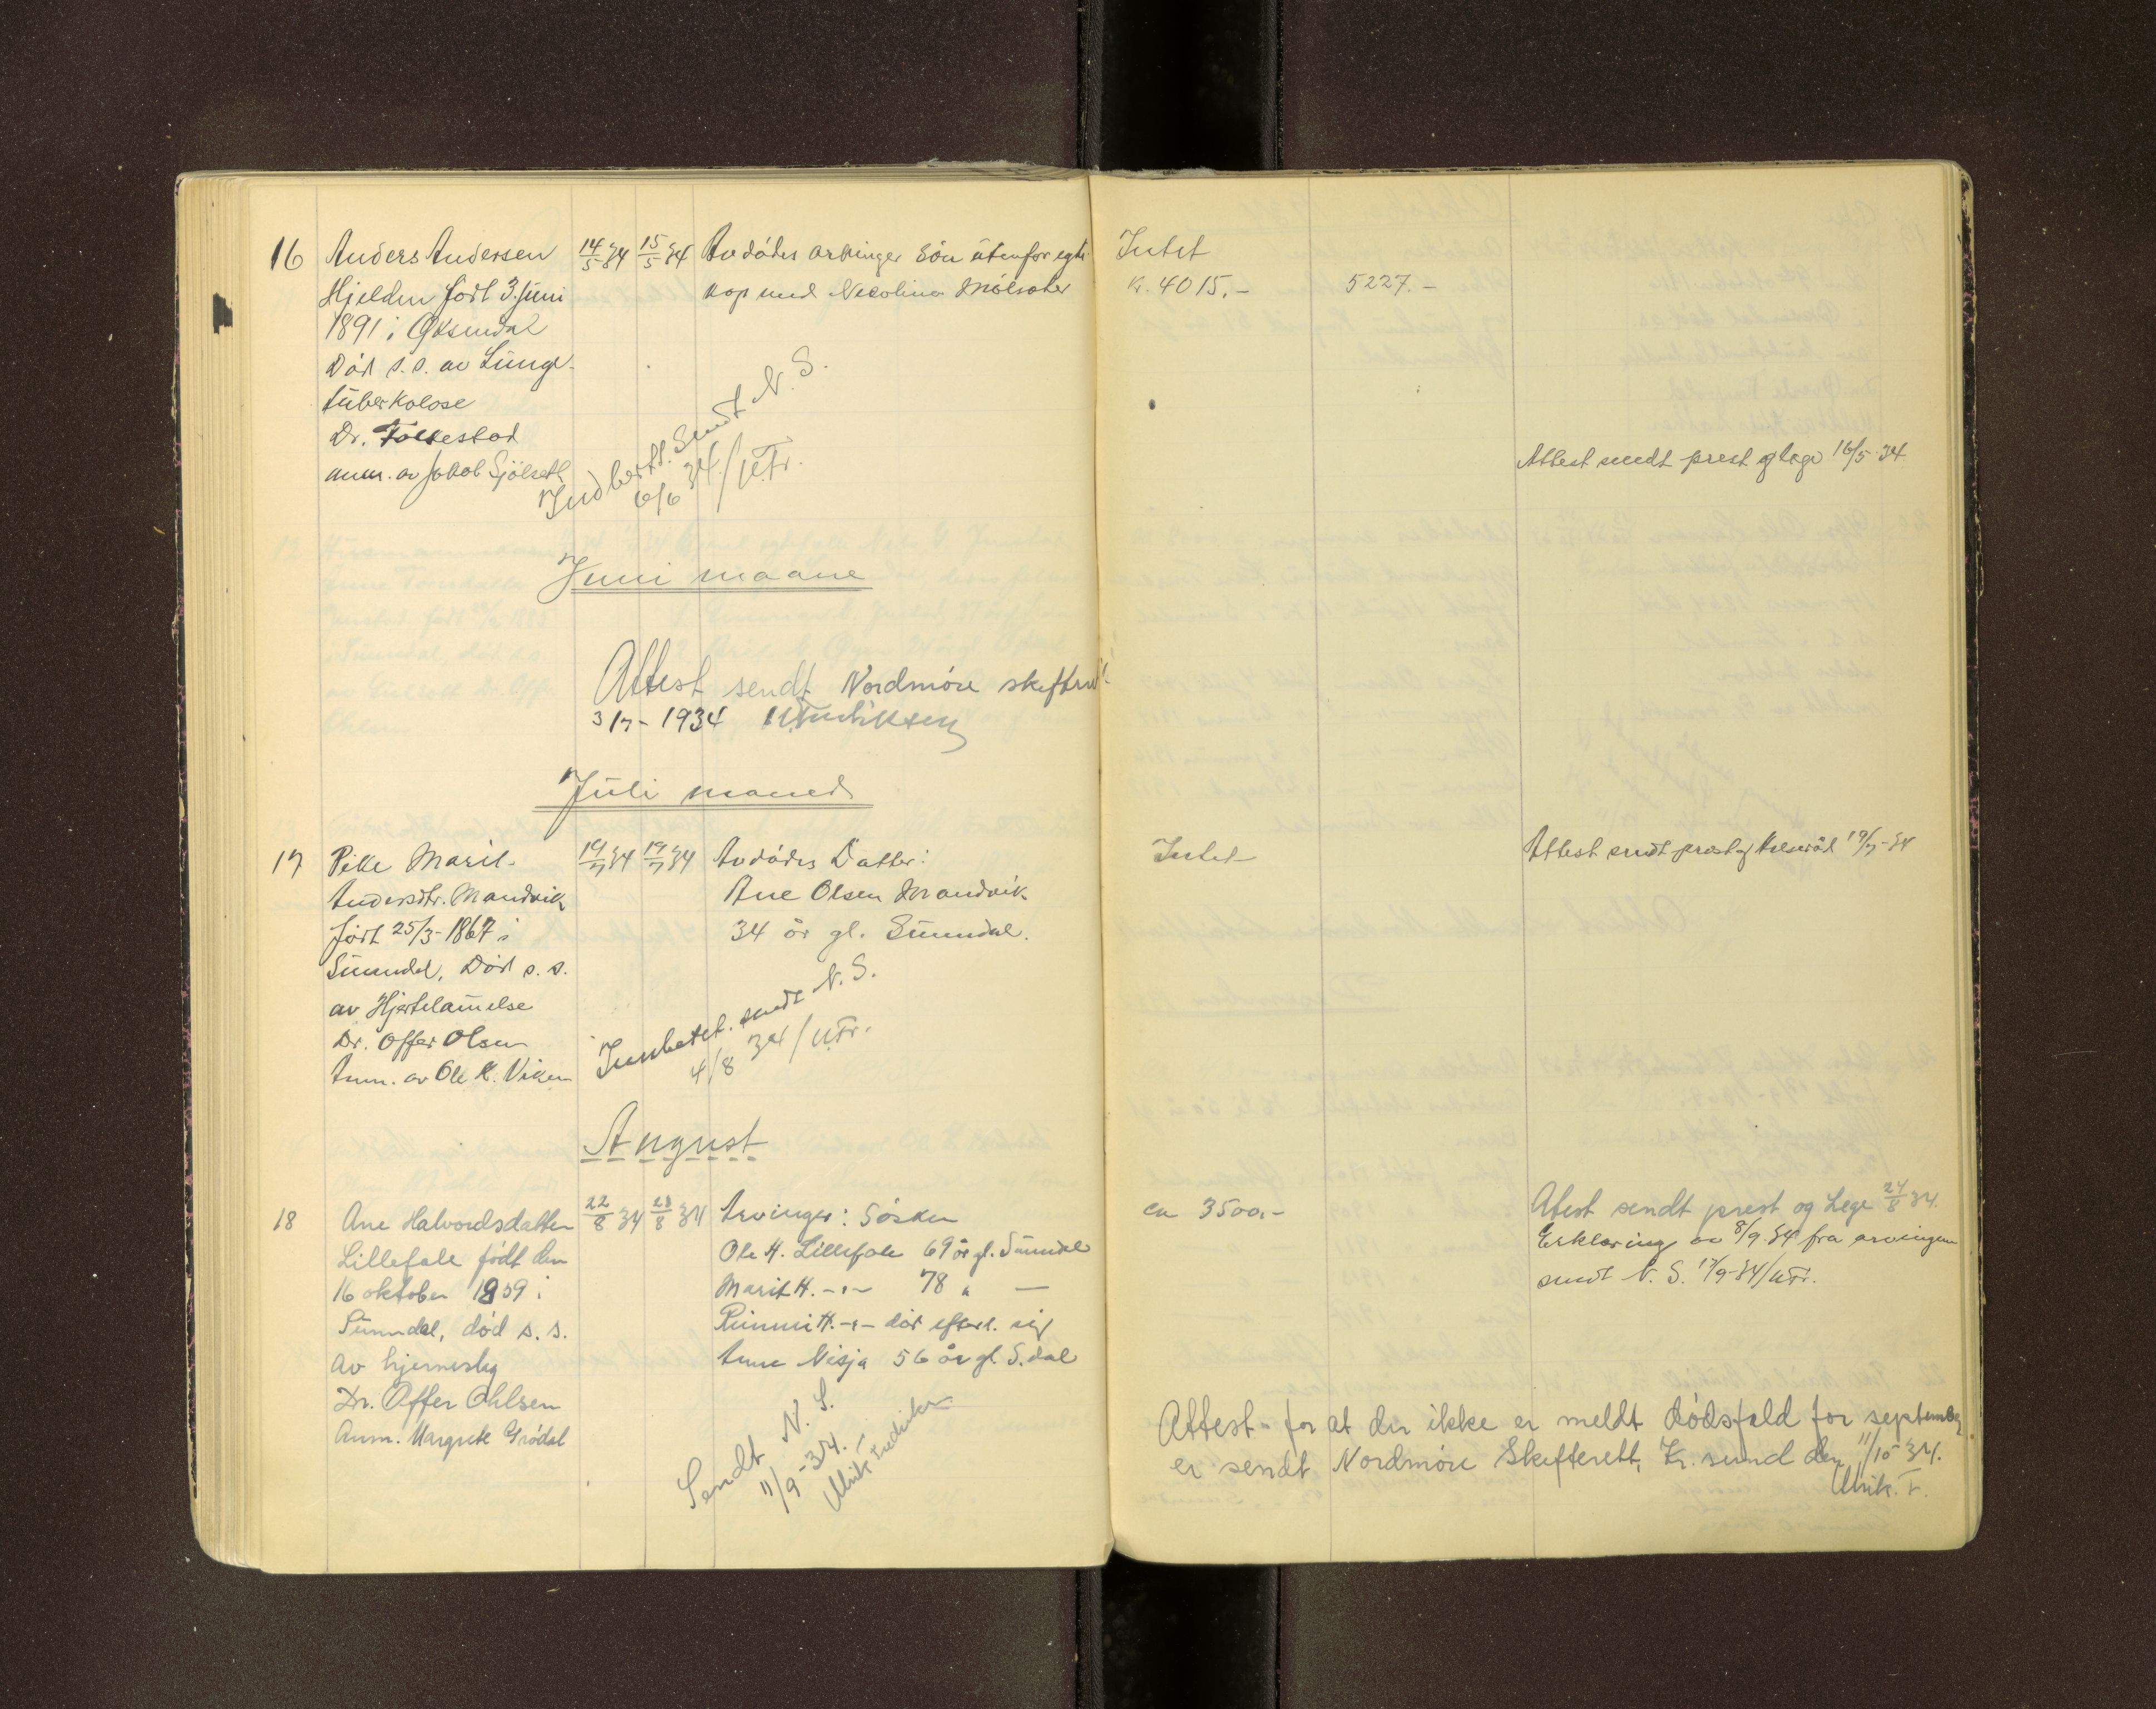 16
Anders Andersen
Hjelden født 3. juni
1891 i Øksendal
Død s.s. av Lunge-
tuberkolose
Dr. Folkestad
anm. av Jakob Sjölseth
14/5 34
15/5 34
Avdødes arvinger Sön utenfor egte
kap med Nicolina
Intet
Kr. 4015.-
5227.-
Attest sendt prest og lege 16/5 34
Indberett. Sendt N. S.
6/6 34/UFr.
Juni maane
Attest sendt Nordmöre skifterett
3/7 - 1934
Juli maaned
17
Pike Marit
Andersdtr. Mandvik
født 25/3-1867 i
Sunndal, Død s.s.
av Hjertelammelse
Dr. Offer Olsen
Anm. av Ole K. Viken
19/7 34
Avdødes Datter:
Ane Olsen Mandvik
34 år gl. Sunndal.
Intet
Attest sendt prest og 19/7-34
Innberet. sendt N. S.
4/8 34/UFr.
August
18
Ane Halvordsdatter
Lillefale født den
16 oktober 1859 i
Sunndal, död s. s.
av hjerneslag
Dr. Offer Ohlsen
Anm. Margrete Grødal
22/8 34
23/8 34
Arvinger: Søsken
Ole H. Lillefale 69 år gl. Sunndal
Marit H. -"- 78 " —
H. -"- død efterl. sig
Anne Nisja 56 år gl. S.dal
ca 3500.-
Atest sendt prest og Lege 24/8 34.
Erklæring av 8/9-34 fra arvingene
sendt N. S. /9-34/UFr.
Sendt N. S.
11/9-34.-
Ulrik Fredriksen
Attest - for at der ikke er meldt dödsfald for september
er sendt Nordmöre Skifterett, Kr. sund den 11/10-34.
Ulrik. F.